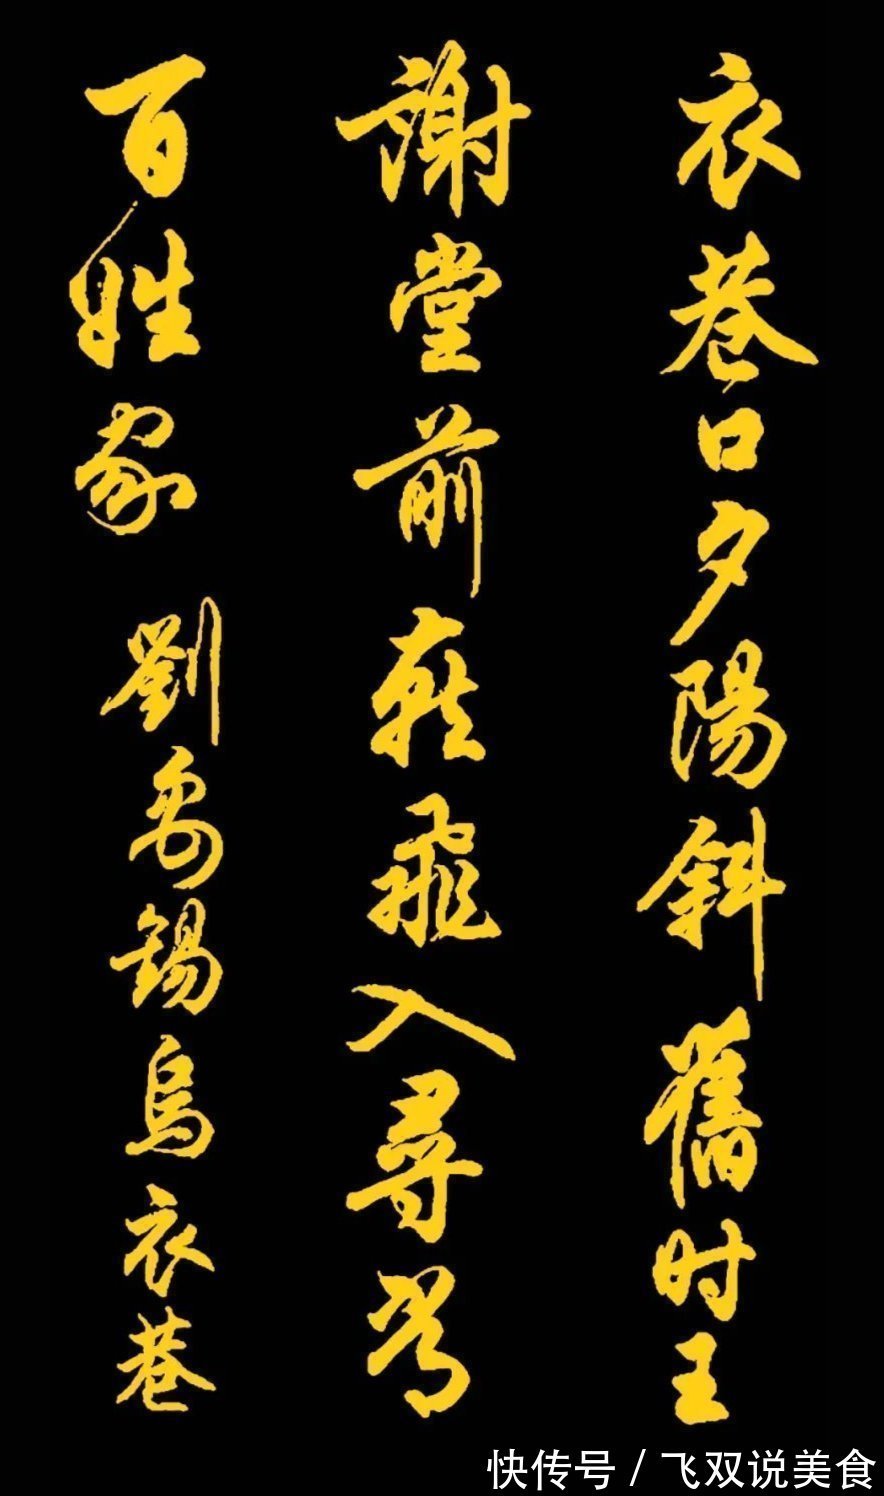 衣巷口夕陽斜舊时王
謝堂前燕飛入尋常
百姓家 劉禹錫烏衣巷
快传号 / 飞双说美食